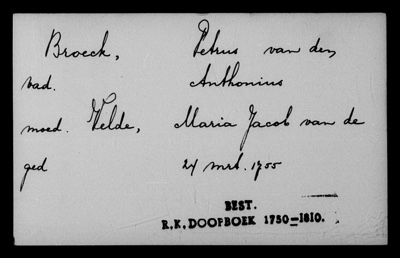 Broeck, Petrus van den
vad. Anthonius
moed. Velde, Maria Jacob van de
ged 24 mrt. 1755
BEST.
R.K. DOOPBOEK 1750-1810.